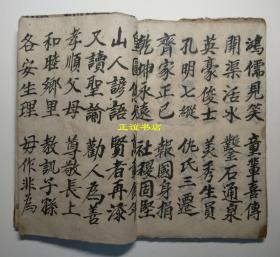 鴻儒見笑 童輩喜傳
開渠活水 鑿石通泉
英豪俊士 美秀生員
孔明七縱 仉氏三遷
齊家正己 報國身捐
乾坤永遠 社稷固堅
山人諺語 賢者再添
又讀聖諭 勸人為善
孝順父母 尊敬長上
和睦鄉里 教訓子孫
各安生理 毋作非為
正誼書店